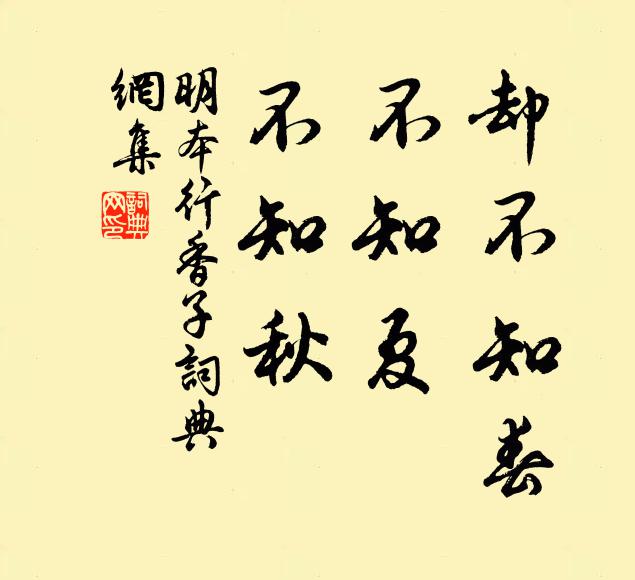 却不知春
不知夏
不知秋
明本行香子詞典
網集
詞典
网印